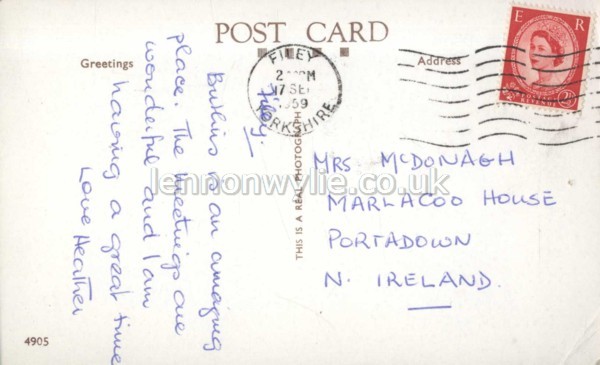 POST CARD
Greetings
Address
FILEY
PM
17 SEP
1959
YORKSHIRE
E R
POSTAGE REVENUE
2½
Filey.
Butlins is an amazing
place. The meetings are
wonderful and I am
having a great time
Love Heather
THIS IS A REAL PHOTOGRAPH
MRS MCDONAGH
MARLACOO HOUSE
PORTADOWN
N. IRELAND.
4905
lennonwylie.co.uk